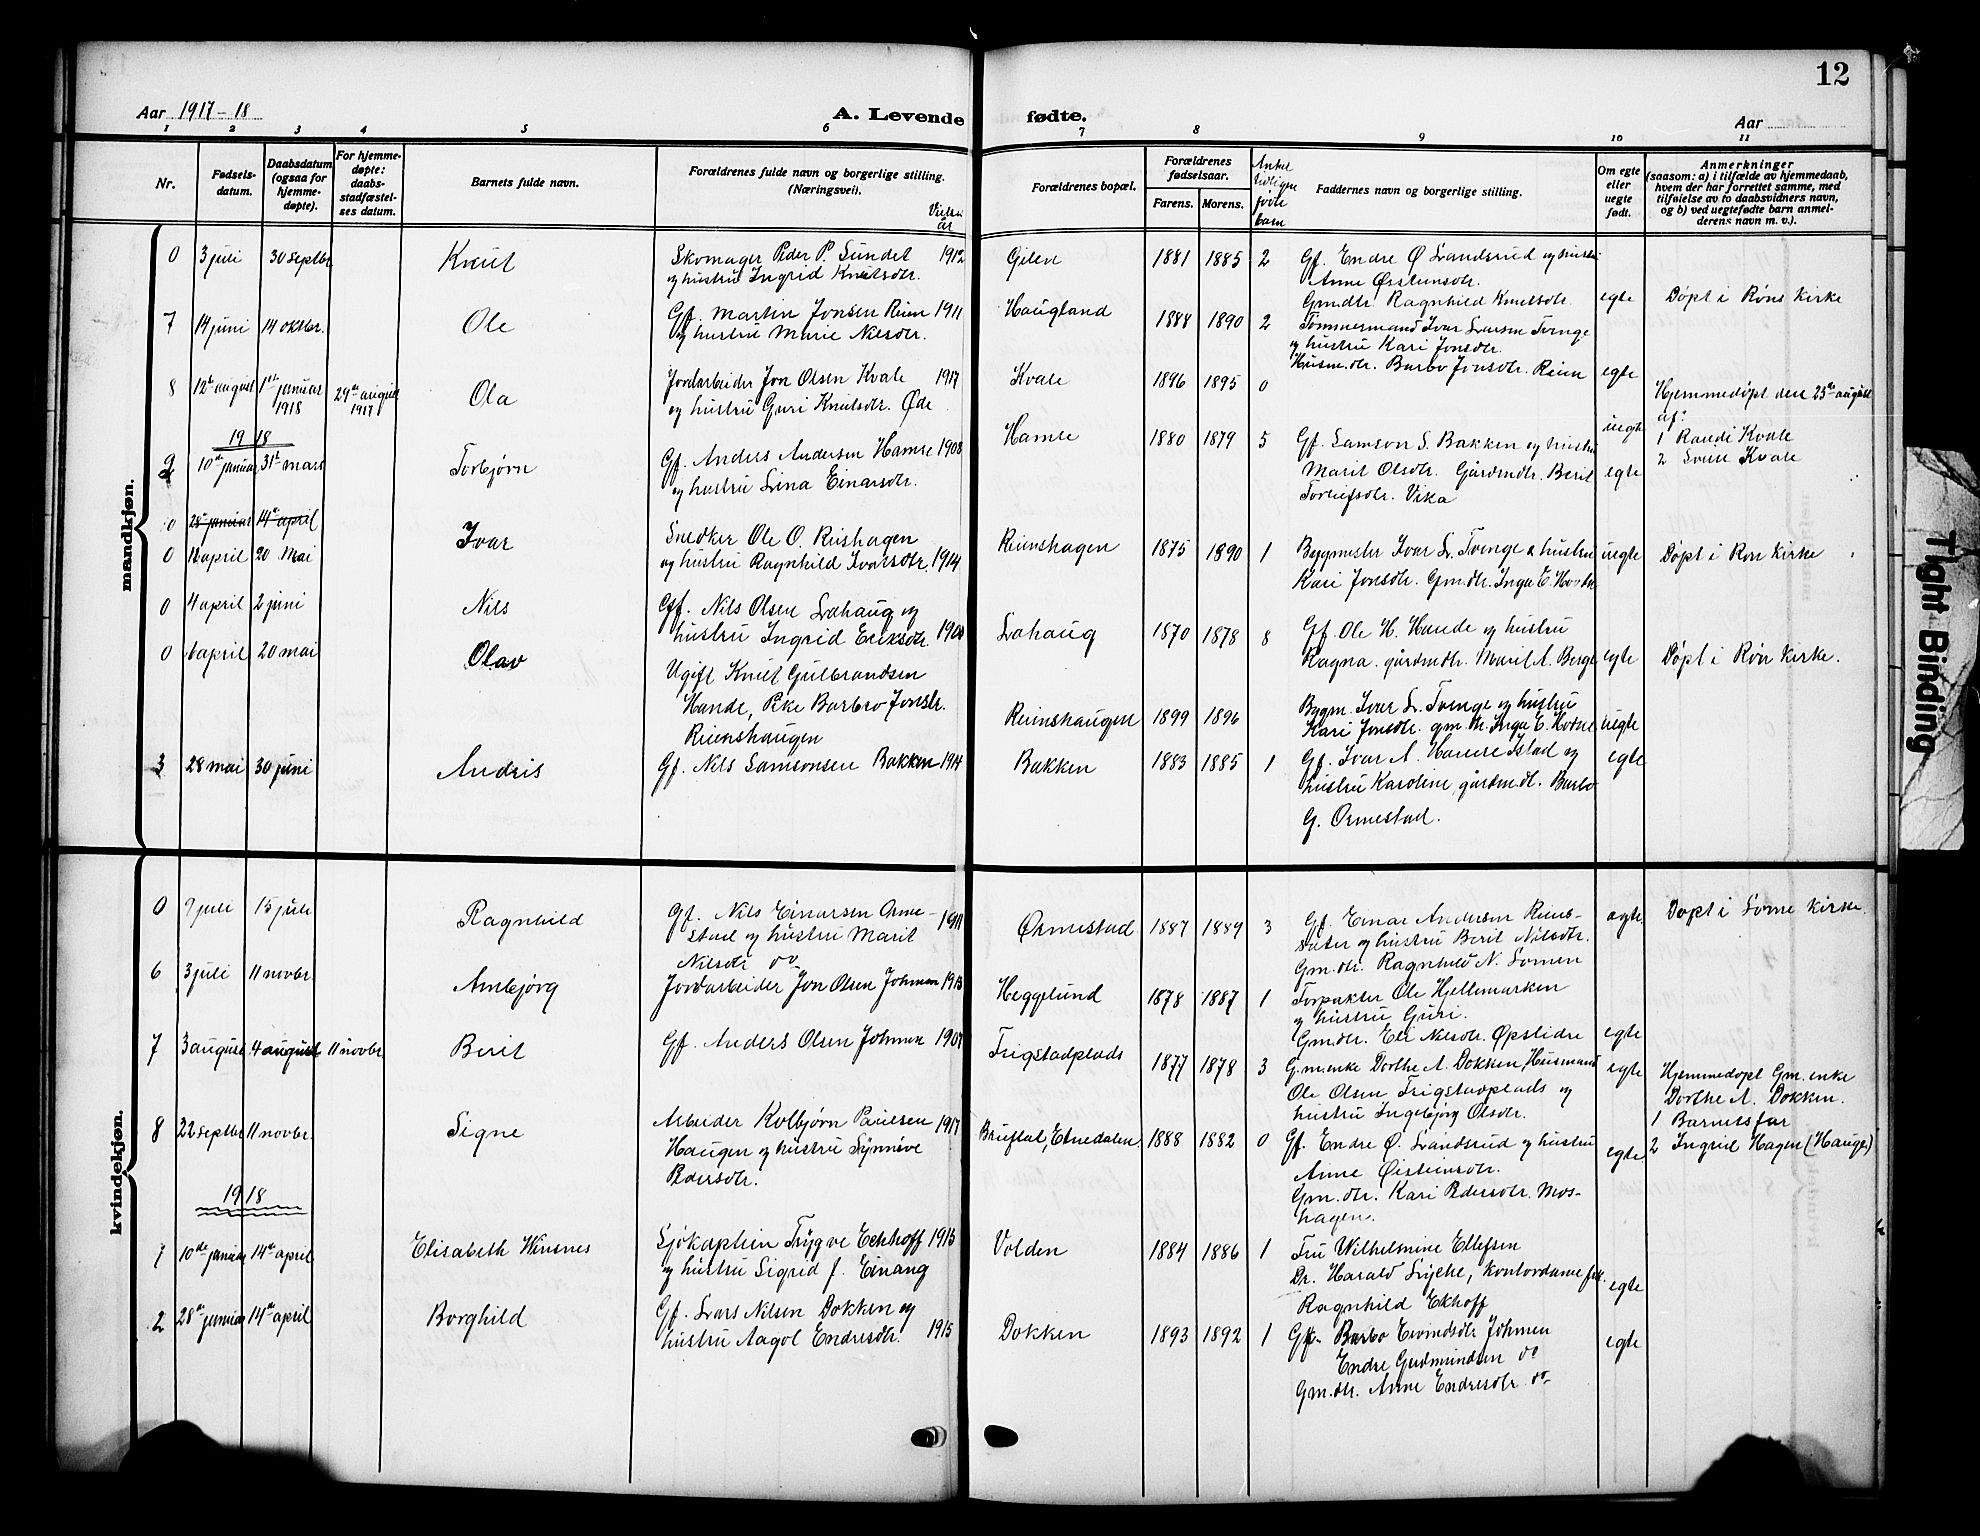 12
Aar 1917-18 A. Levende fødte. Aar
1 2 3 4 5 6 7 8 9 10 11
Nr.
Fødsels-
datum.
Daabsdatum
(ogsaa for
hjemme-
døpte).
For hjemme-
døpte:
daabs-
stadfæstel-
ses datum.
Barnets fulde navn.
Forældrenes fulde navn og borgerlige stilling.
(Næringsvei).
Vielses
år
Forældrenes bopæl.
Forældrenes
fødselsaar.
Farens. Morens.
Antal
tidligere
fødte
barn
Faddernes navn og borgerlige stilling.
Om egte
eller
uegte
født.
Anmerkninger
(saasom: a) i tilfælde av hjemmedaab,
hvem der har forrettet samme, med
tilføielse av to daabsvidners navn,
og b) ved uegtefødte barn anmel-
derens navn m. v.).
mandkjøn.
0 3 juli 30 septbr Knut
Skomager Peder P. Sundet 1912
og hustru Ingrid Knutsdtr.
Gilen 1881 1885 2
Gf. Endre Ø Landsrud og hustru
Anne Østensdtr.
Gmdtr. Ragnhild Knutsdtr. egte Døpt i Røns Kirke
7 14 juni 14 oktbr. Ole
Gf. Martin Jonsen Rein 1911
og hustru Marie Nilsdtr.
Haugland 1888 1890 2
Tømmermand Ivar Larsen Tvenge
og hustru Kari Jonsdtr.
Husm.dtr. Barbo Jonsdtr. Reien egte
8 12te august 1ste januar 1918 29de august 1917 Ola
Jordarbeider Jon Olsen Kvale 1917
og hustru Guri Knutsdtr. Øde
Kvale 1896 1895 0 uegte
Hjemmedøpt den 23de august
af:
1 Randi Kvale
2 Svein Kvale
1918
2 10de januar 31te mars Torbjørn
Gf. Anders Andersen Hamre 1908
og hustru Lina Einarsdtr.
Hamre 1880 1879 5
Gf. Samson S. Bakken og hustru
Marit Olsdtr. Gårdmdtr. Berit egte
Torleifsdtr. Vika
0 28de januar 14de april
0 11 april 20 Mai Ivar
Snedker Ole O. Reishagen
og hustru Ragnhild Ivarsdtr. 1914
Reinshagen 1875 1890 1
Bygmester Ivar L. Tvenge & hustru
Kari Jonsdtr. Gm.dtr. Inga E. Hovsn uegte Døpt i Røn Kirke
0 4 april 2 juni Nils
Gf. Nils Olsen Lahaug og
hustru Ingrid Eriksdtr. 1900
Lahaug 1870 1878 8
Gf. Ole H. Hande og hustru
Ragna. gårdmdtr. Marit A. Berge egte Døpt i Røn Kirke.
0 6 april 20 mai Olav
Ugift Knut Gulbrandsen
Hande, Pike Barbro Jonsdtr.
Reienshaugen
Reienshaugen 1899 1896
Bygm. Ivar L. Tvenge og hustru
Kari Jonsdtr. gm.dtr. Inga E. Hovsn uegte
3 28 mai 30 juni Andris
Gf. Nils Samsonsen Bakken 1914
Bakken 1883 1885 1
Gf. Ivar A. Hamre Istad og
hustru Karoline, gårdm.dt. Barbo
G. Ormestad. egte
kvindekjøn.
0 9 juli 15 juli Ragnhild
Gf. Nils Einarsen Orme- 1911
stad og hustru Marit
Nilsdtr do
Ørmestad 1887 1889 3
Gf. Einar Andersen Reins-
sæter og hustru Berit Nilsdtr.
Gm.dtr. Ragnhild N. Lomen
egte Døpt i Lome Kirke.
6 3 juli 11 novbr. Arnbjørg
Jordarbeider Jon Olsen Johmen 1913
Heggelund 1878 1887 1
Forpakter Ole Hjellemarken
og hustru Guri.
Gm.dtr. Eli Nilsdtr. Øpslidre egte
7 3 august 4 august 11 novbr Berit
Gf. Anders Olsen Johmen 1907
Trigstadplads 1877 1878 3
G.m.enke Dorthe A. Dokken, Husmand
Ole Olsen Trigstadplads og
hustru Ingebjørg Olsdtr. egte
Hjemmedøpt Gm.enke
Dorthe A. Dokken.
1 Barnets far
2 Ingrid Hagen (Hauge)
8 22 septbr 11 novbr. Signe
Arbeider Kolbjørn Paulsen 1917
Haugen og hustru Synnøve
Pedersdtr.
Bruflat, Etnedalen 1888 1882 0
Gf. Endre Ø. Landsrud og hustru
Anne Øistensdtr.
Gm.dtr. Kari Pedersdtr. Mos-
hagen. egte.
1918
1 10de januar 14de april Elisabeth Winsnes
Sjøkaptein Trygve Eckhoff 1913
og hustru Sigrid f. Einang
Volden 1884 1886 1
Fru Wilhelmine Ellefsen
Dr. Harald Lyche, Kontordame frk.
Ragnhild Ekhoff egte
2 28de januar 14de april Borghild
Gf. Lars Nilsen Dokken og
hustru Aagot Endresdtr. 1915
Dokken 1893 1892 1
Gf. Barbo Eivindsdtr Johmen
Endre Gudmundsen do
Gm.dtr. Anne Endresdtr do
egte
Tight Binding